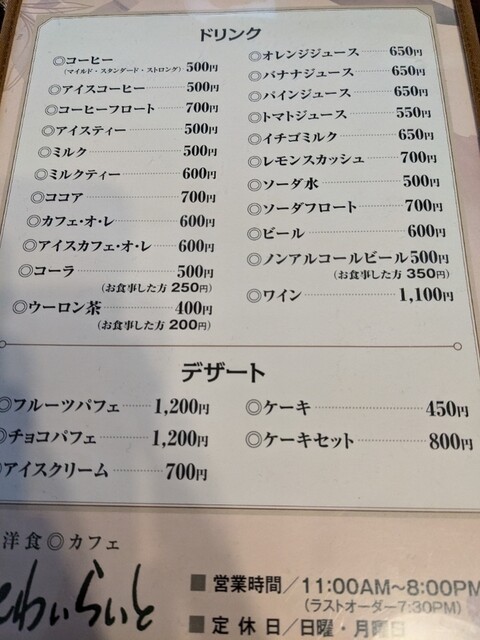 ドリンク
◎コーヒー
(マイルド・スタンダード・ストロング) 500円
◎アイスコーヒー 500円
◎コーヒーフロート 700円
◎アイスティー 500円
◎ミルク 500円
◎ミルクティー 600円
◎ココア 700円
◎カフェ・オ・レ 600円
◎アイスカフェ・オ・レ 600円
◎コーラ 500円
(お食事した方 250円)
◎ウーロン茶 400円
(お食事した方 200円)
◎オレンジジュース 650円
◎バナナジュース 650円
◎パインジュース 650円
◎トマトジュース 550円
◎イチゴミルク 650円
◎レモンスカッシュ 700円
◎ソーダ水 500円
◎ソーダフロート 700円
◎ビール 600円
◎ノンアルコールビール 500円
(お食事した方 350円)
◎ワイン 1,100円
デザート
◎フルーツパフェ 1,200円
◎チョコパフェ 1,200円
◎アイスクリーム 700円
◎ケーキ 450円
◎ケーキセット 800円
洋食◎カフェ
とわいらいと
■営業時間/11:00AM~8:00PM
(ラストオーダー7:30PM)
■定休日/日曜・月曜日